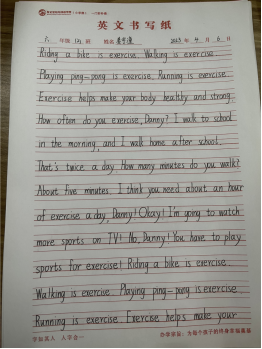 英文书写纸
六 年级 班 姓名 2023 年 4 月 6 日
Riding a bike is exercise. Walking is exercise.
Playing ping-pong is exercise. Running is exercise.
Exercise helps make your body healthy and strong.
How often do you exercise, Danny? I walk to school
in the morning and I walk home after school.
That's twice a day. How many minutes do you walk?
About five minutes. I think you need about an hour
of exercise a day, Danny! Okay! I'm going to watch
more sports on TV! No, Danny! You have to play
sports for exercise! Riding a bike is exercise.
Walking is exercise. Playing ping-pong is exercise.
Running is exercise. Exercise helps make your
学知真人 人学合一 办学宗旨：为每个孩子的终身幸福奠基